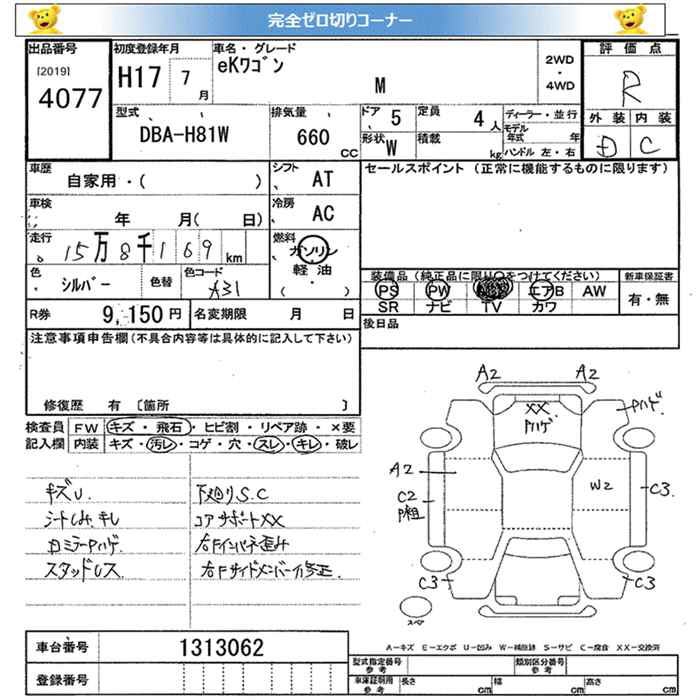 完全ゼロ切りコーナー
出品番号
[2019]
4077
初度登録年月
H17 7月
車名・グレード
eKワゴン
M
2WD
・
4WD
評価点
R
外装 内装
D C
型式
DBA-H81W
排気量
660 cc
ドア 5
形状 W
定員 4人
積載 kg
ディーラー・並行
モデル年式 年
ハンドル 左・右
車歴
自家用・( )
シフト
AT
車検
年 月( 日)
冷房
AC
走行
15万8千169km
燃料
ガソリン
軽油
・( )
色
シルバー
色替
色コード
A31
R券 9,150円
名変期限 月 日
セールスポイント(正常に機能するものに限ります)
装備品(純正品に限り○をつけてください)
PS PW エアB AW
SR ナビ TV カワ
新車保証書
有・無
後日品
注意事項申告欄(不具合内容等は具体的に記入して下さい)
修復歴 有 [箇所 ]
検査員記入欄
FW キズ・飛石・ヒビ割・リペア跡・×要
内装 キズ・汚レ・コゲ・穴・スレ・キレ・破レ
キズU.
シートしみ、キレ
ロミラーPハゲ
スタッドレス
下廻りS.C
コアサポートXX
右Fインパネ歪み
右Fサイドメンバー修正.
A2 A2
XX
Pハゲ
Pハゲ
A2
C2
W2
C3
C3 C3
スペア
A-キズ E-エクボ U-凹み W-補修跡 S-サビ C-腐食 XX-交換済
車台番号 1313062
登録番号
型式指定番号 参考
類別区分番号 参考
車庫証明用 参考
長さ cm
幅 cm
高さ cm